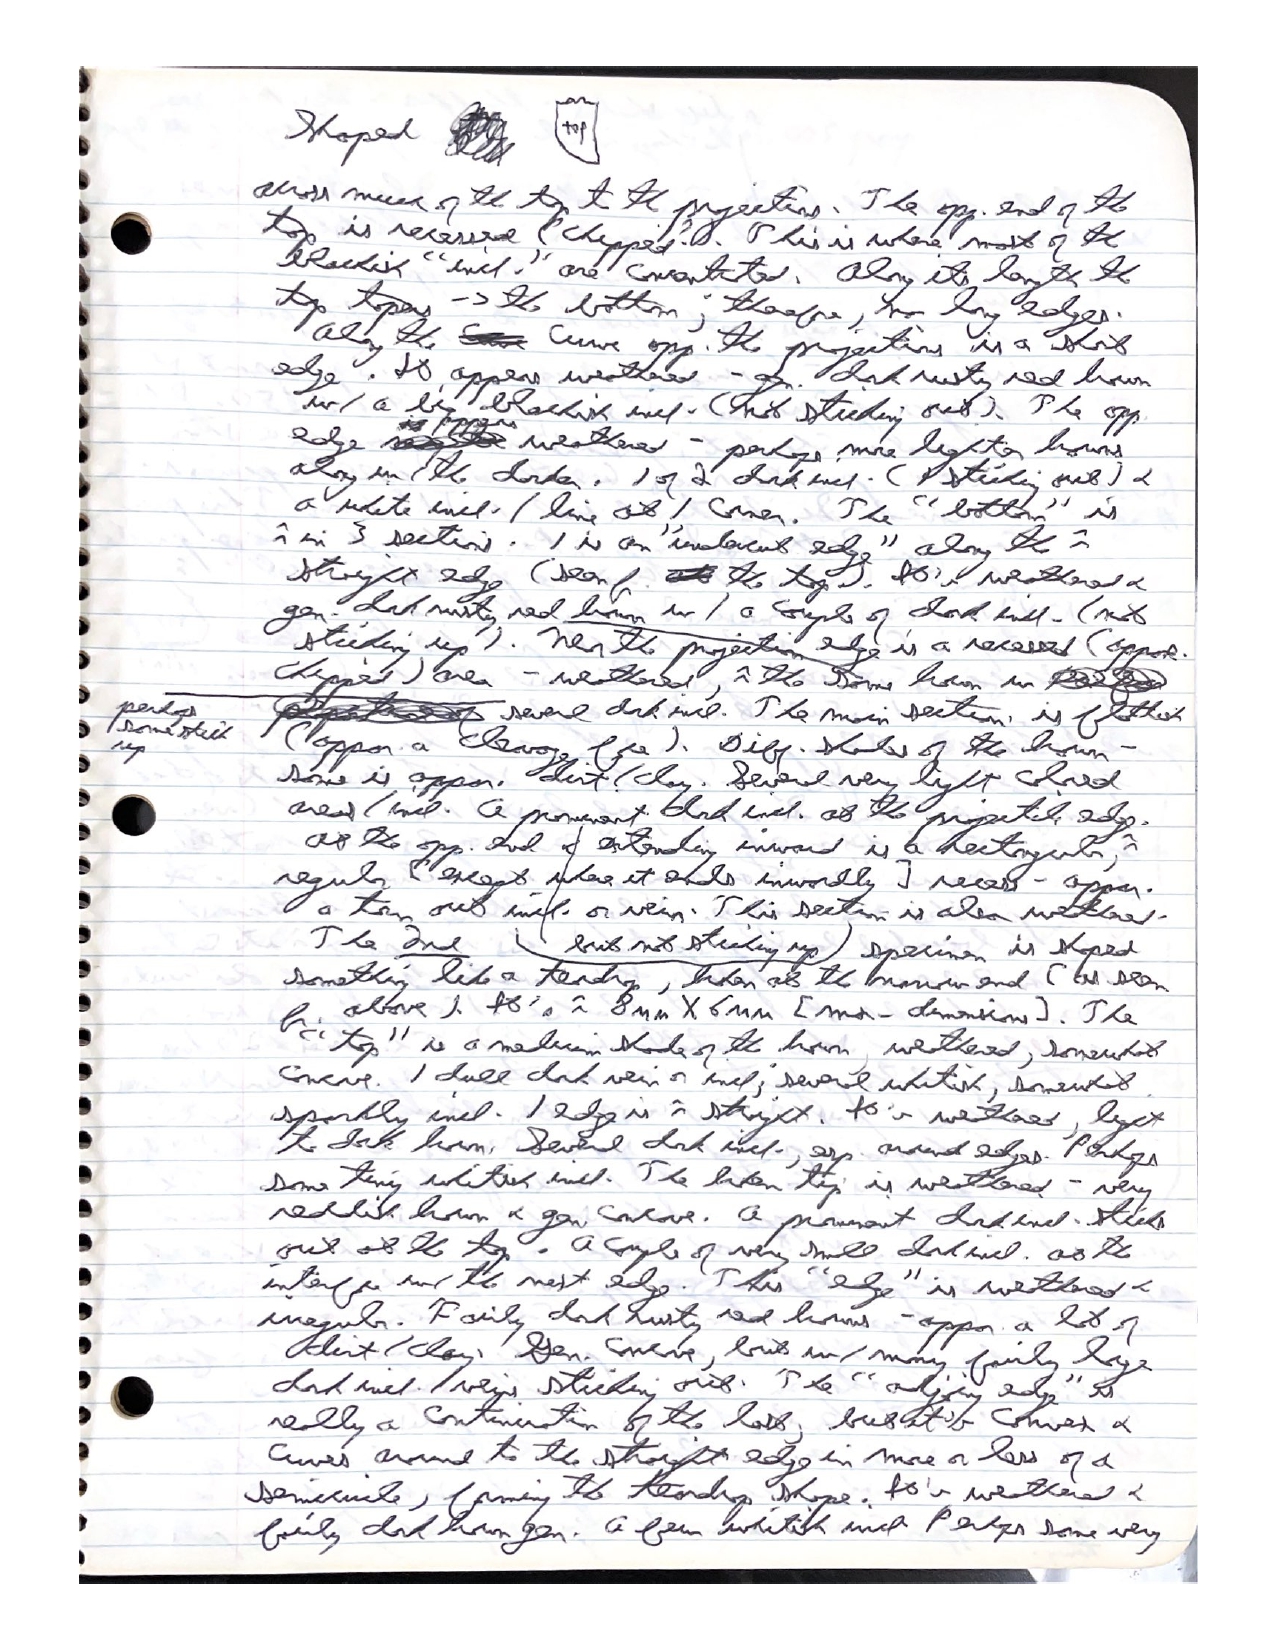 Shaped top
across much of the top to the projection. The opp. end of the
top is recessed ("chipped"). This is where most of the
blackish "incl." are concentrated. Along its length the
top tapers -> the bottom; therefore, no long edges.
Along the curve opp. the projection is a short
edge. It appears weathered - gen. dark rusty red brown
w/ a big blackish incl. (not sticking out). The opp.
edge is appears weathered - perhaps more lighter browns
along w/ the darker. 1 of 2 dark incl. (1 sticking out) &
a white incl./line at 1 corner. The "bottom" is
~ in 3 sections. 1 is an "undercut edge" along the ~
straight edge (seen f. the top). It's weathered &
gen. dark rusty red brown w/ a couple of dark incl. (not
sticking up). Near the projection edge is a recessed (appar.
chipped) area - weathered, ~ the same brown w/
several dark incl. The main section is flattish
perhaps
some stick
up
(appar. a cleavage face). Diff. shades of the brown -
some is appar. dirt/clay. Several very light colored
areas/incl. A prominent dark incl. at the edge.
At the opp. end & extending inward is a rectangular, ~
regular [except where it ends inwardly] recess - appar.
a torn out incl. or vein. This section is also weathered.
(but not sticking up)
The 2nd specimen is shaped
something like a teardrop, broken at the narrow end (as seen
fr. above). It's ~ 8mm X 6mm [max. dimensions]. The
"top" is a medium shade of the brown, weathered, somewhat
concave. 1 dull dark vein or incl; several whitish, somewhat
sparkly incl. 1 edge is ~ straight. It's weathered, light
to dark brown. Several dark incl., esp. around edges. Perhaps
some tiny whitish incl. The broken tip is weathered - very
reddish brown & gen. concave. A prominent dark incl. sticks
out at the top. A couple of very small dark incl. at the
interface w/ the next edge. This "edge" is weathered &
irregular. Fairly dark rusty red browns - appar. a lot of
dirt/clay. Gen. concave, but w/ many fairly large
dark incl./veins sticking out. The "adjoing edge" is
really a continuation of the last, but it's convex &
curves around to the straight edge in more or less of a
semicircle, forming the teardrop shape. It's weathered &
fairly dark brown gen. A few whitish incl. Perhaps some very